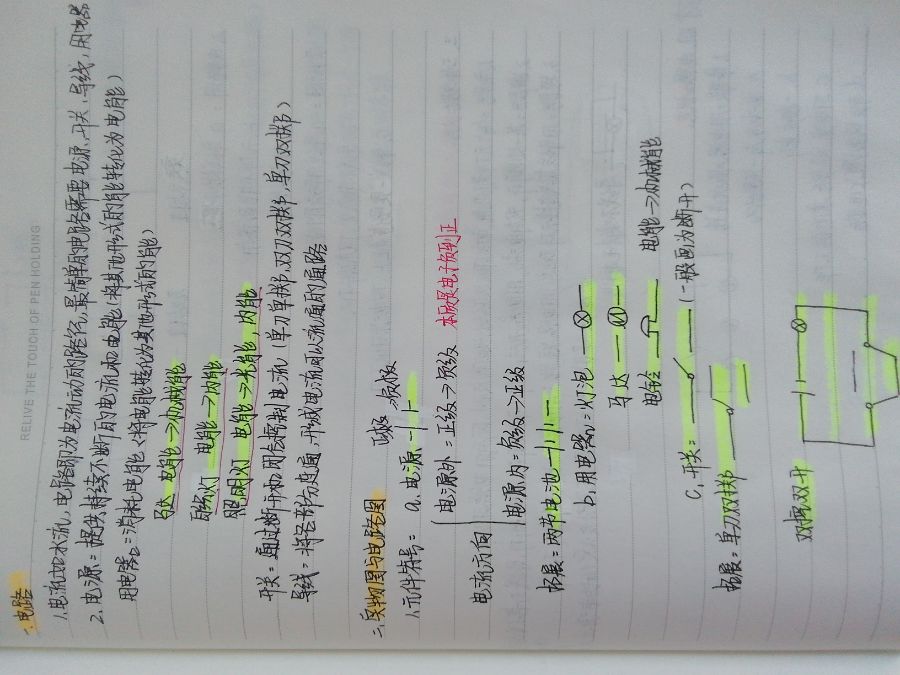 RELIVE THE TOUCH OF PEN HOLDING
一、电路
1、电流如水流,电路即为电流流动的路径,最简单的电路需要电源、开关、导线、用电器
2、电源:提供持续不断的电流和电能(将其他形式的能转化为电能)
用电器:消耗电能(将电能转化为其他形式的能)
马达 电能→机械能
电能→内能
照明灯 电能→光能,内能
开关:通过断开和闭合控制电流(单刀单掷,双刀双掷,单刀双掷)
导线:将各部分连通,形成电流可以流通的通路
二、实物图与电路图
1、元件符号:a、电源
正极 负极
电流方向
电源外:正级→负级 本质是电子负到正
电源内:负级→正级
拓展:两节电池
b、用电器:灯泡
马达 M
电铃 电能→机械能
c、开关: (一般画为断开)
拓展:单刀双掷
双控双开